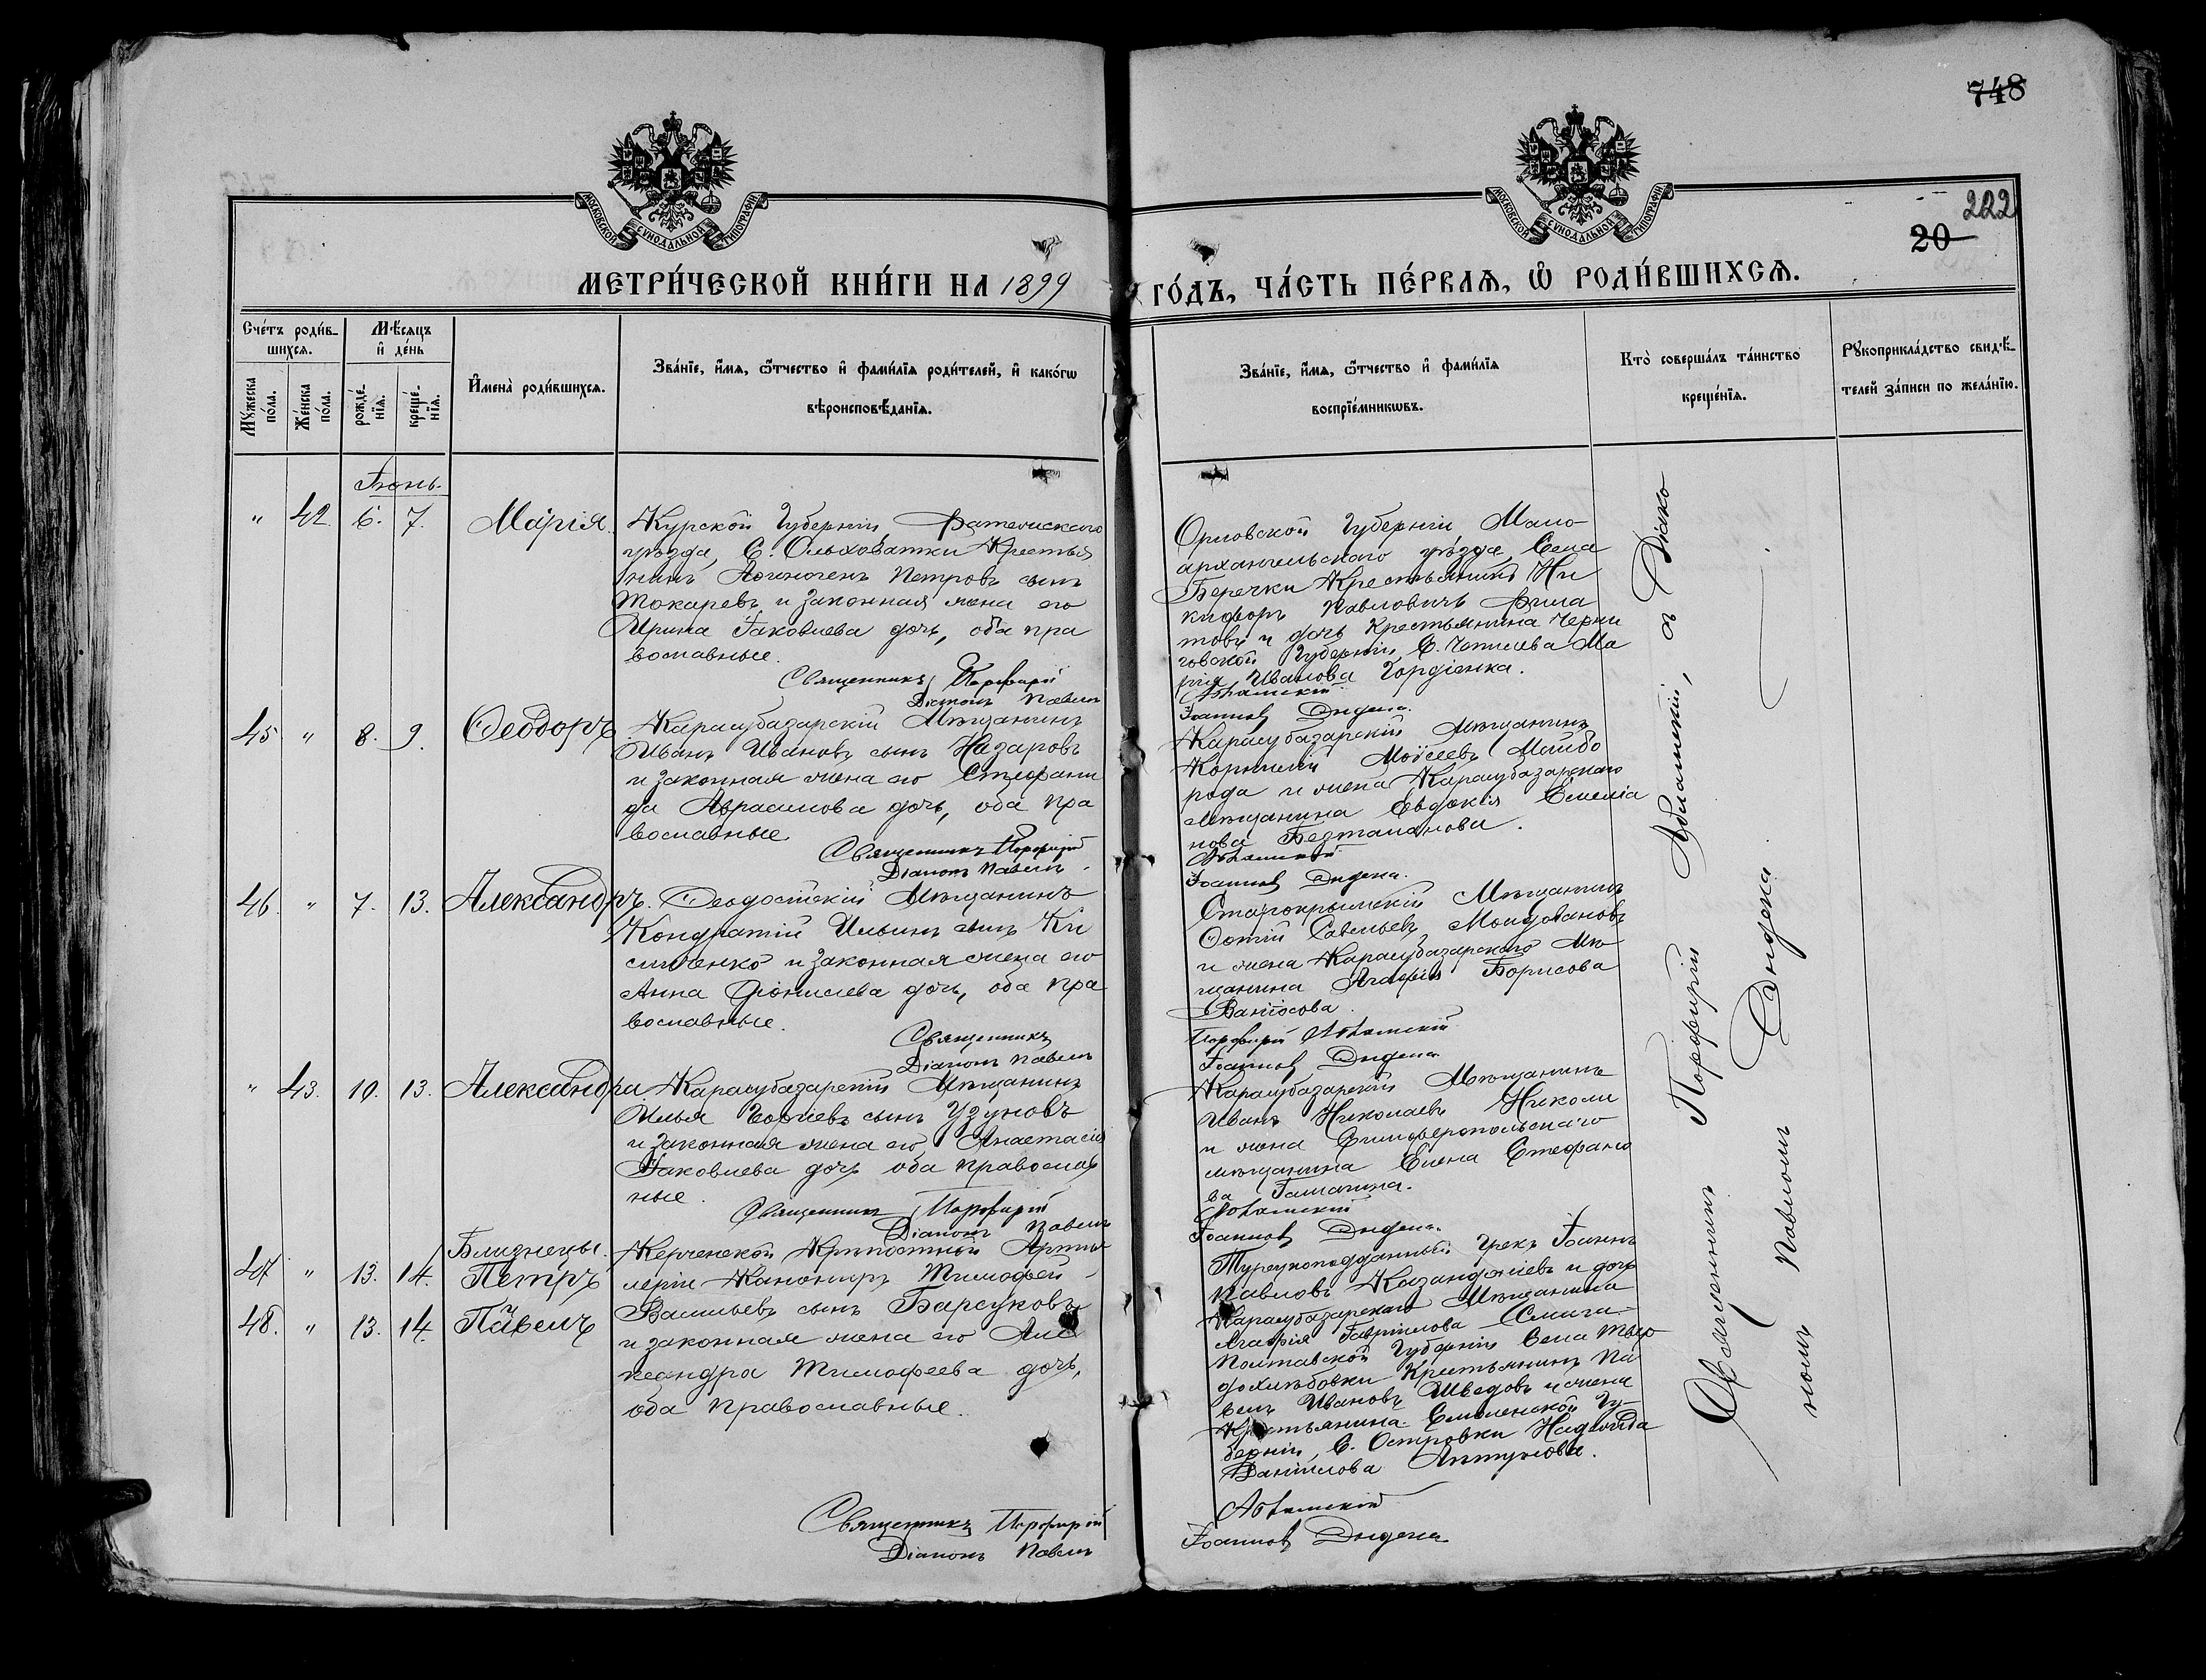 748
МОСКОВСКОЙ СѴНОДАЛЬНОЙ ТИПОГРАФІИ
МОСКОВСКОЙ СѴНОДАЛЬНОЙ ТИПОГРАФІИ
222
20
МЕТРИ́ЧЕСКОЙ КНИ́ГИ НА 1899
ГО́ДЪ, ЧА́СТЬ ПЕ́РВАѦ, Ѽ РОДИ́ВШИХСѦ.
Сче́тъ роди́в-
шихсѧ.
Мѣ́сяцъ
и҆ де́нь
Мꙋ́жеска по́ла.
Же́нска по́ла.
рожде́-нїѧ.
креще́-нїѧ.
И҆мена̀ роди́вшихсѧ.
Зва́нїе, и҆́мѧ, ѻ҆́тчество и҆ фами́лїѧ роди́телей, и҆ како́гѡ
вѣроисповѣ́данїѧ.
Зва́нїе, и҆́мѧ, ѻ҆́тчество и҆ фами́лїѧ
воспрїе́мникѡвъ.
Кто̀ соверша́лъ та́инство
креще́нїѧ.
Рꙋкоприкла́дство свидѣ́-
телей за́писи по жела́нїю.
Іюнь.
" 42. 6. 7. Марія.
Курской Губерніи, Фатежскаго
уѣзда, С. Ольховатки Крестья
нинъ Логиногенъ Петровъ сынъ
Токаревъ и законная жена его
Ирина Іаковлева дочь, оба пра
вославные.
Священникъ Порфирій
Діаконъ Павелъ
Орловской Губерніи Мало-
архангельскаго уѣзда, Села
Беречки Крестьянинъ Ни
кифоръ Павловичъ Фила
товъ и дочь Крестьянина Черни
говской Губерніи, С. Ма
рія Иванова Гордіенка.
Абламскій
Іоанновъ Дидена.
45 " 8. 9. Ѳеодоръ.
Карасубазарскій Мѣщанинъ
Иванъ Ивановъ сынъ Назаровъ
и законная жена его Стефани
да Авраамова дочь, оба пра
вославные.
Священникъ Порфирій
Діаконъ Павелъ
Карасубазарскій Мѣщанинъ
Корнилій Моѵсеевъ Майбо
рода и жена Карасубазарскаго
мѣщанина Евдокія Емеліа
нова Безталанова.
Абламскій
Іоанновъ Дидена.
46. " 7. 13. Александръ.
Ѳеодосійскій Мѣщанинъ
Кондратій Ильинъ сынъ Ки
сличенко и законная жена его
Анна Діонисіева дочь, оба пра
вославные.
Священникъ
Діаконъ Павелъ
Старокрымскій Мѣщанинъ
Фотій Савельевъ Молдовановъ
и жена Карасубазарскаго Мѣ
щанина Агафія Борисова
Порфирій Абламскій
Іоанновъ Дидена
" 43. 10. 13. Александра.
Карасубазарскій Мѣщанинъ
Илья сынъ Узуновъ
и законная жена его Анастасія
Іаковлева дочь оба православ
ные.
Священникъ Порфирій
Діаконъ Павелъ
Карасубазарскій Мѣщанинъ
Иванъ Николаевъ Николи
и жена Симферопольскаго
мѣщанина Елена Стефано
ва
Абламскій
Іоанновъ Дидена.
Близнецы.
47 " 13. 14. Петръ
и
48. " 13. 14. Павелъ
Керченской Крѣпостной Артил
леріи Канониръ Тимофей
Васильевъ сынъ Барсуковъ
и законная жена его Але
ксандра Тимофеева дочь,
оба православные.
Священникъ Порфирій
Діаконъ Павелъ
Турецкоподданный Грекъ Іоаннъ
Павловъ Казанджіевъ и дочь
Карасубазарскаго Мѣщанина
Агафія Гавріилова
Полтавской Губерніи Села Твер
дохлѣбовки Крестьянинъ Па
велъ Ивановъ Шведовъ и жена
Крестьянина Смоленской Гу-
берніи, С. Островки Надежда
Даніилова
Абламскій
Іоанновъ Дидена
Священникъ Порфирій Абламскій, съ Діако
номъ Павломъ Дидена.